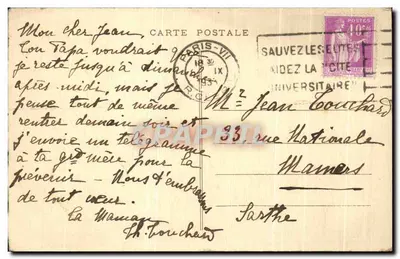 CARTE POSTALE
Mon cher Jean,
Ton Papa voudrait que
je reste jusqu'à dimanche
après midi, mais je
pense tout de même
rentrer demain soir et
j'envoie un télégramme
à ta grd mère pour la
prévenir - Nous t'embrassons
de tout cœur.
Ta Maman
Th. Touchard
PARIS-VII
18
IX
SAUVEZ LES ELITES
AIDEZ LA "CITE
UNIVERSITAIRE"
POSTES
Mr Jean Touchard
33, rue Nationale
Mamers
Sarthe
DELCAMPE